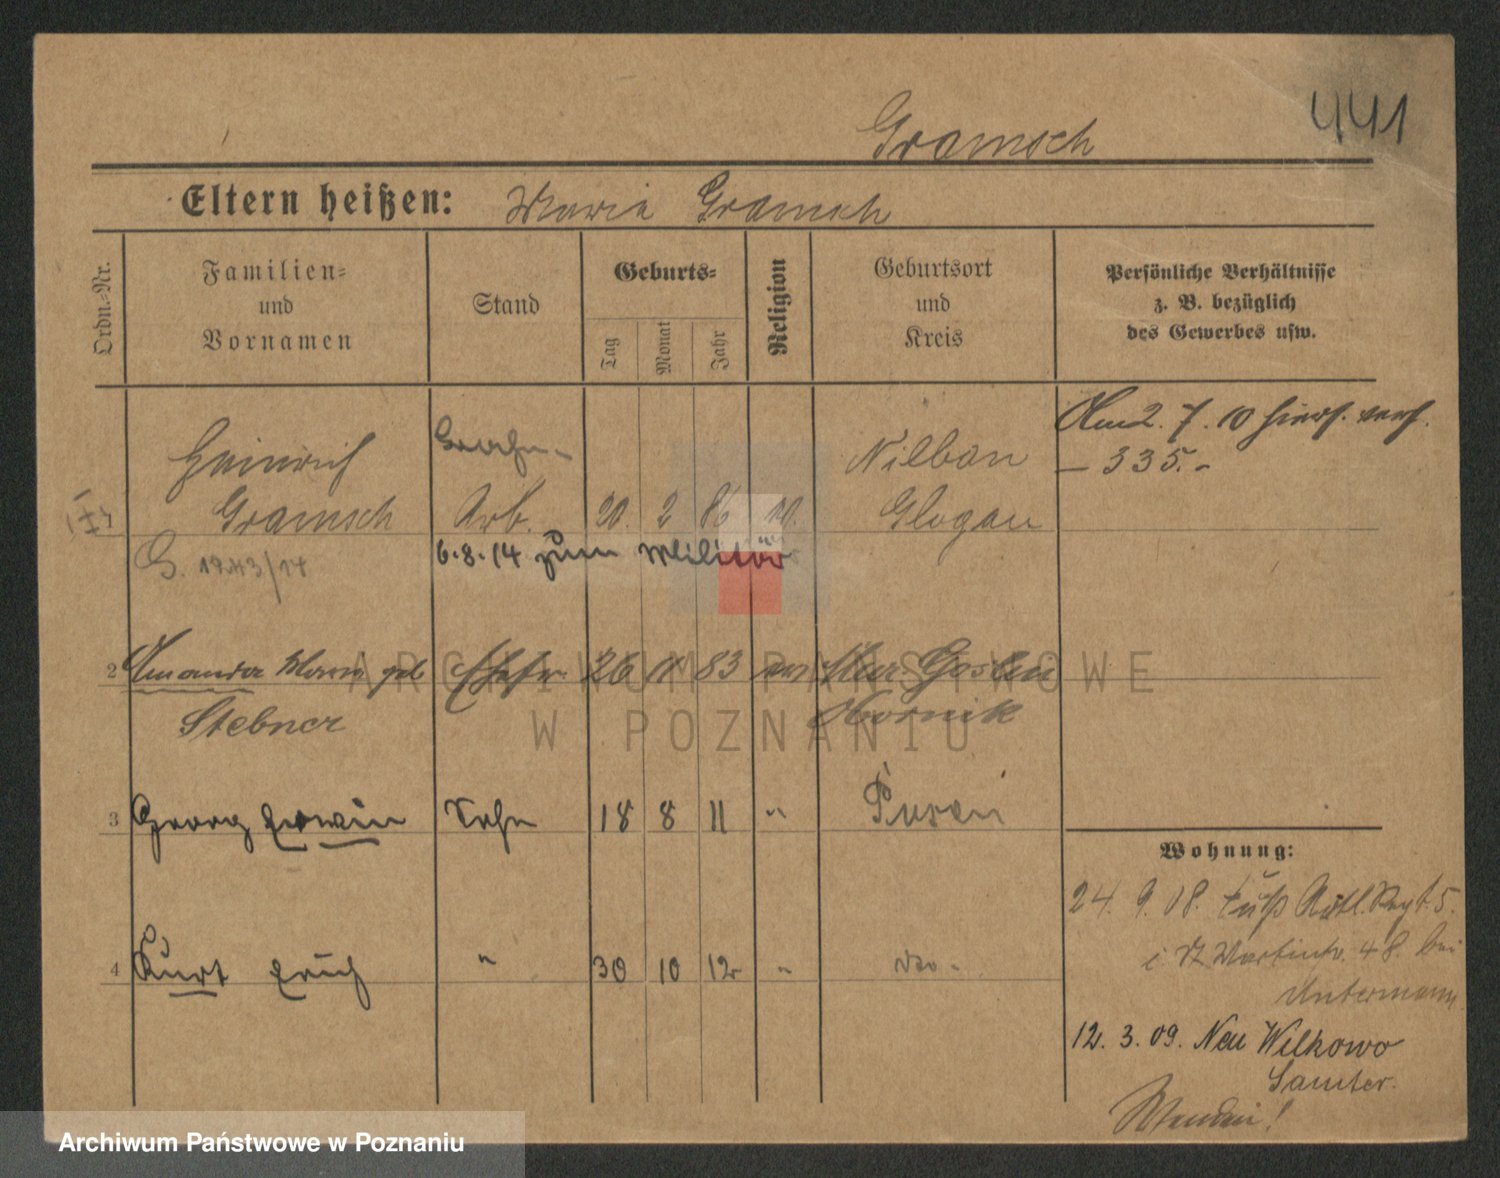 441
Gramsch
Eltern heißen: Maria Gramsch
Ordn.-Nr.
Familien-
und
Vornamen
Stand
Geburts-
Tag
Monat
Jahr
Religion
Geburtsort
und
Kreis
Persönliche Verhältnisse
z. B. bezüglich
des Gewerbes usw.
Heinrich
Gramsch
Arb.
20. 2 86
Nilbau
Glogau
Am 2. 7. 10 hiers. verh.
— 335. -
G. 1243/14
6.8.14 zum Militär
2 Amanda Maria geb
Stebner
Ehefr. 26 11 83 ev Mur. Goslin
Obornik
3 Georg Erwin Sohn 18 8 11 " Posen
4 Kurt Erich " 30 10 12 " do -
Wohnung:
24. 9. 08. Fuß Artl. Regt. 5.
i St Martinstr. 48. bei
Untermann
12. 3. 09. Neu Wilkowo
Samter.
Wenden!
ARCHIWUM PAŃSTWOWE
W POZNANIU
Archiwum Państwowe w Poznaniu